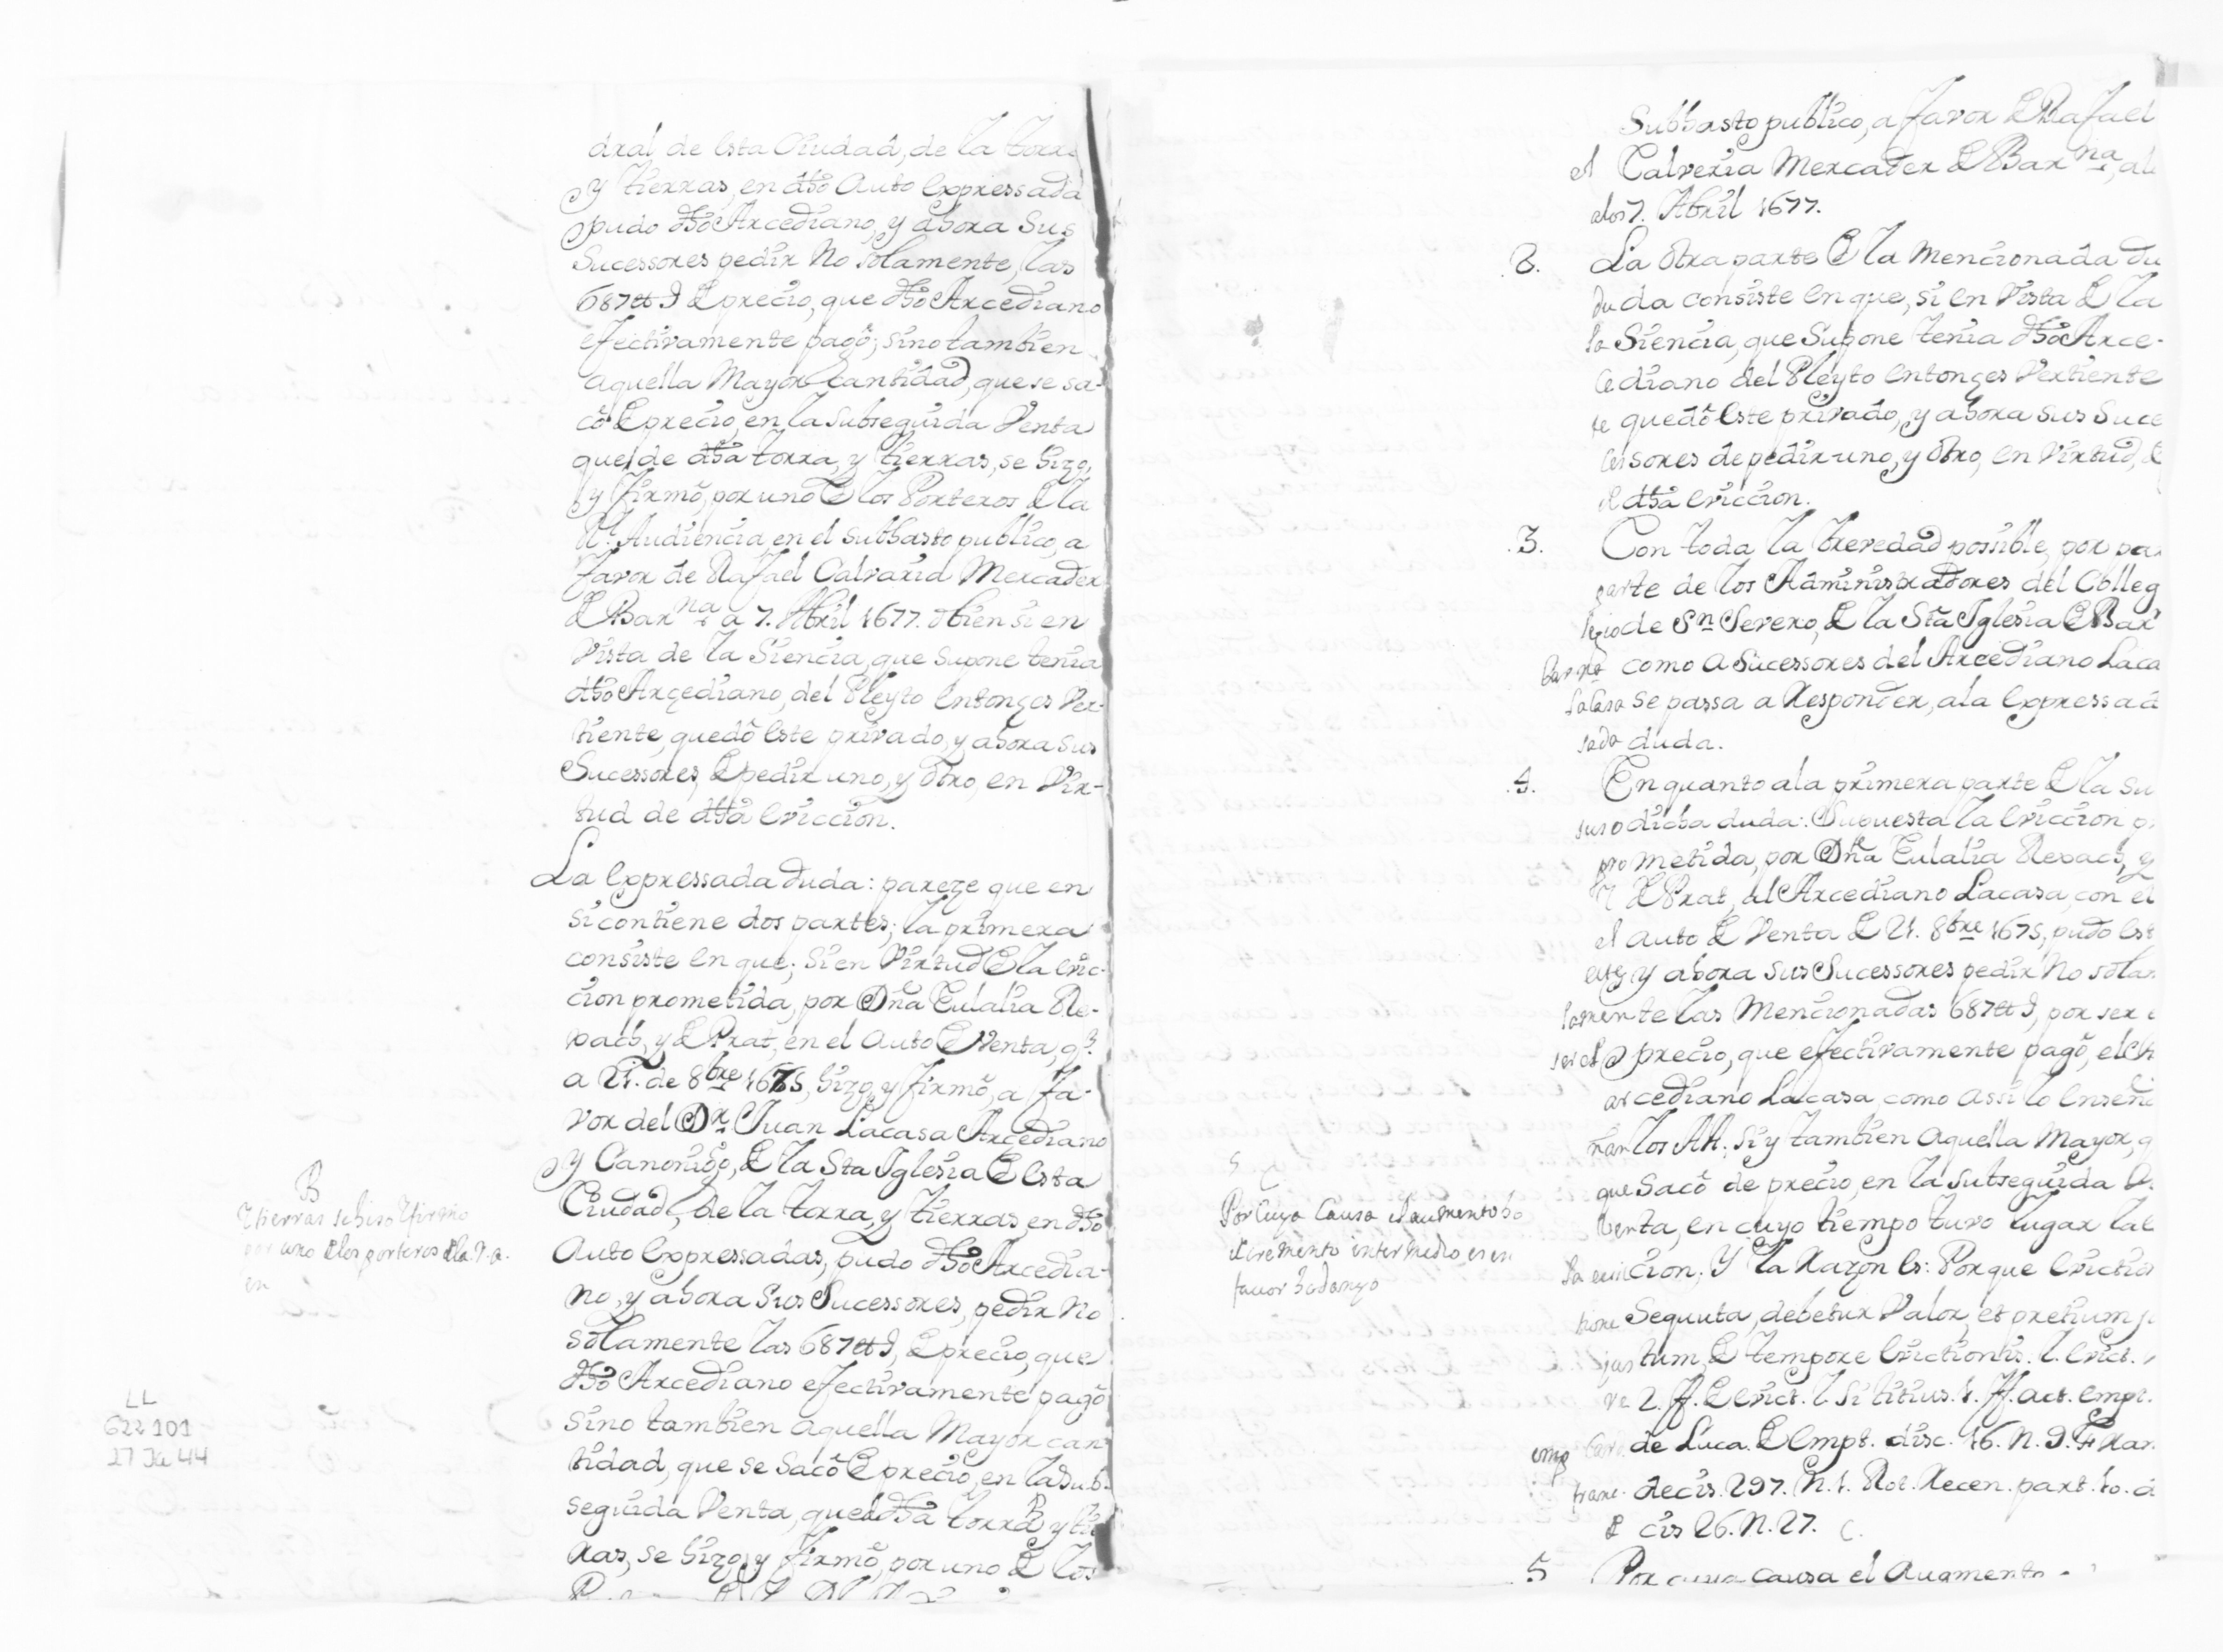 dral de esta Ciudad, de la torre
y tierras, en dho Auto expressada
pudo dho Arcediano, y ahora sus
Sucessores pedir no solamente, las
687 de precio, que dho Arcediano
efectivamente pagò; sino tambien
aquella Mayor Cantidad, que se sa-
cò de precio, en la subseguida Venta
que de dha torra, y tierras, se hizo,
y firmò, por uno de los Porteros de la
Rl. Audiencia en el subhasto publico, a
favor de Rafael Calvaria Mercader
de Barna a 7. Abril 1677. o bien si en
Vista de la Siencia, que supone tenia
dho Arçediano, del Pleyto entonçes Ver-
tiente, quedò este privado, y ahora sus
Sucessores, de pedir uno, y otro, en Vir-
tud de dha eviccion.
La expressada duda: pareze que en
si contiene dos partes; la primera
consiste en que; si en Virtud de la evic-
cion prometida, por Dña Eulalia Re-
xach, y de Prat, en el Auto de Venta, q.
a 21. de 8bre 1675, hizo, y firmò, a fa-
vor del Dr. Juan Lacasa Arcediano
y Canonigo, de la Sta Iglesia de esta
Ciudad, de la torra, y tierras, en dho
Auto expressadas, pudo dho Arcedia-
no, y ahora sus Sucessores, pedir no
solamente las 687, de precio, que
dho Arcediano efectivamente pagò
sino tambien aquella Mayor can
tidad, que se sacò de precio, en la sub-
seguida Venta, que de dha torra B y tie
rras, se hizo, y firmò, por uno de los
B
Y tierras se hizo Y firmo
por uno de los porteros de la R. A.
en
LL
622101
27 Ja 44
Subhasto publico, a favor de Rafael
el Calveria Mercader de Barna, al
a los 7. Abril 1677.
2. La otra parte de la mencionada du
duda consiste en que, si en Vista de la
la Siencia, que supone tenia dho Arce-
cediano del Pleyto entonçes Vertiente
te quedò este privado, y ahora sus Suce
cessores de pedir uno, y otro, en Virtud, d
de dha eviccion.
3. Con toda la brevedad possible, por pa
parte de los Administradores del Colleg
legio de Sn Severo, de la Sta Iglesia de Bar
Barna como a Sucessores del Arcediano Laca
Lacasa se passa a Responder, a la expressad
sada duda.
4. En quanto a la primera parte de la su
suso dicha duda: Supuesta la eviccion p
prometida, por Dña Eulalia Rexach, y
Y de Prat, al Arcediano Lacasa, con el
el Auto de Venta de 21. 8bre 1675, pudo est
este, y ahora sus Sucessores pedir no sola
lamente las Mencionadas 687, por ser e
ser el precio, que efectivamente pagò, el
arcediano Lacasa, como assi lo enseñ
ñan los AA; si y tambien aquella Mayor, q
que Sacò de precio, en la subseguida V.
Venta, en cuyo tiempo tuvo lugar la e
la eviccion; Y la razon es: Porque evictio
tione Sequuta, debetur Valor, et pretium j
justum, de tempore evictionis. l. evict.
ve 2. ff. de evict. l. si titius. 1. ff. act. empt.
emp Car. de Luca. de empt. disc. 16. n. 9. Fran
franc. decis. 297. n. 1. Rot. recen. part. 10. d
de cis 26. n. 27.
5
Por Cuya Causa el aumento ho
increment intermedio es en
favor
5 Por cuya causa el Augmento